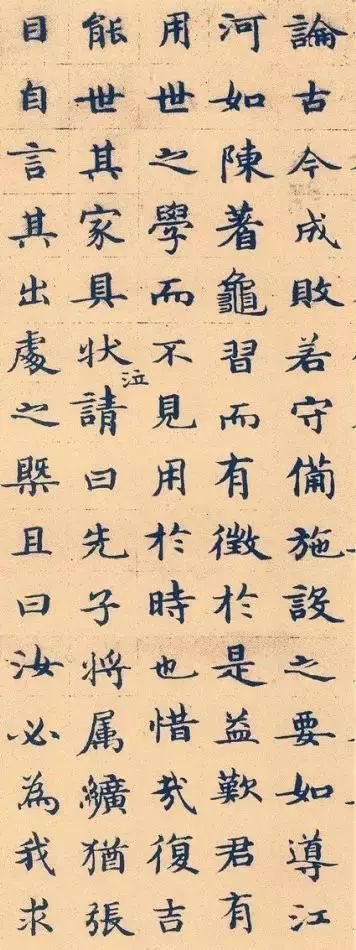 論古今成敗若守備施設之要如導江
河如陳蓍龜習而有徵於是益歎君有
用世之學而不見用於時也惜哉復吉
能世其家具状泣請曰先子将属纊猶張
目自言其出處之槩且曰汝必為我求